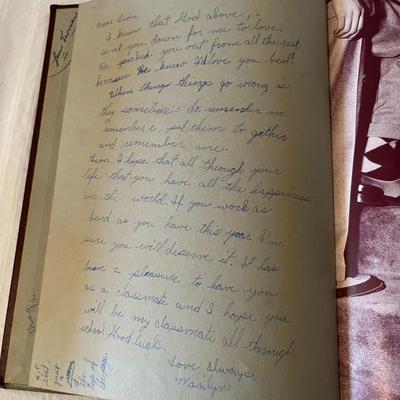 Dear Leon,
I know that God above,
sent you down for me to love.
He picked you out from all the rest,
because He knew I'd love you best!
When things things go wrong as
they sometimes do remember m
remember e, put them to gether
and remember me.
Leon I hope that all through your
life that you have all the happiness
in the world. If you work as
hard as you have this year I'm
sure you will deserve it. It has
been a pleasure to have you
as a classmate and I hope you
will be my classmate all through
school. Good luck.
Love always,
Marilyn
just
a
the
top of
the page